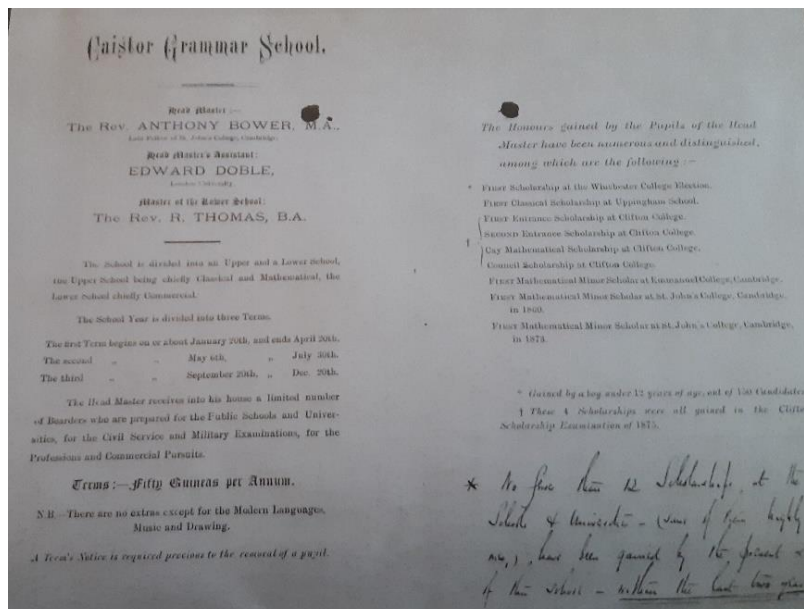 Caistor Grammar School.
Head Master :—
The Rev. ANTHONY BOWER, M.A.,
Late Fellow of St. John's College, Cambridge.
Head Master's Assistant:
EDWARD DOBLE,
London University.
Master of the Lower School:
The Rev. R. THOMAS, B.A.
The School is divided into an Upper and a Lower School,
the Upper School being chiefly Classical and Mathematical, the
Lower School chiefly Commercial.
The School Year is divided into three Terms.
The first Term begins on or about January 20th, and ends April 20th.
The second „ „ May 6th, „ July 30th.
The third „ „ September 20th, „ Dec. 20th.
The Head Master receives into his house a limited number
of Boarders who are prepared for the Public Schools and Univer-
sities, for the Civil Service and Military Examinations, for the
Professions and Commercial Pursuits.
Terms:—Fifty Guineas per Annum.
N.B.—There are no extras except for the Modern Languages,
Music and Drawing.
A Term's Notice is required previous to the removal of a pupil.
The Honours gained by the Pupils of the Head
Master have been numerous and distinguished,
among which are the following :—
* FIRST Scholarship at the Winchester College Election.
FIRST Classical Scholarship at Uppingham School.
† FIRST Entrance Scholarship at Clifton College.
SECOND Entrance Scholarship at Clifton College.
Cay Mathematical Scholarship at Clifton College.
Council Scholarship at Clifton College.
FIRST Mathematical Minor Scholar at Emmanuel College, Cambridge.
FIRST Mathematical Minor Scholar at St. John's College, Cambridge,
in 1869.
FIRST Mathematical Minor Scholar at St. John's College, Cambridge,
in 1873.
* Gained by a boy under 12 years of age, out of 150 Candidates
† These 4 Scholarships were all gained in the Clifto
Scholarship Examination of 1875.
* No fewer than 12 Scholarships, at the
Schools & Universities – (some of them highly
have been gained by the present
of this School – within the last two years